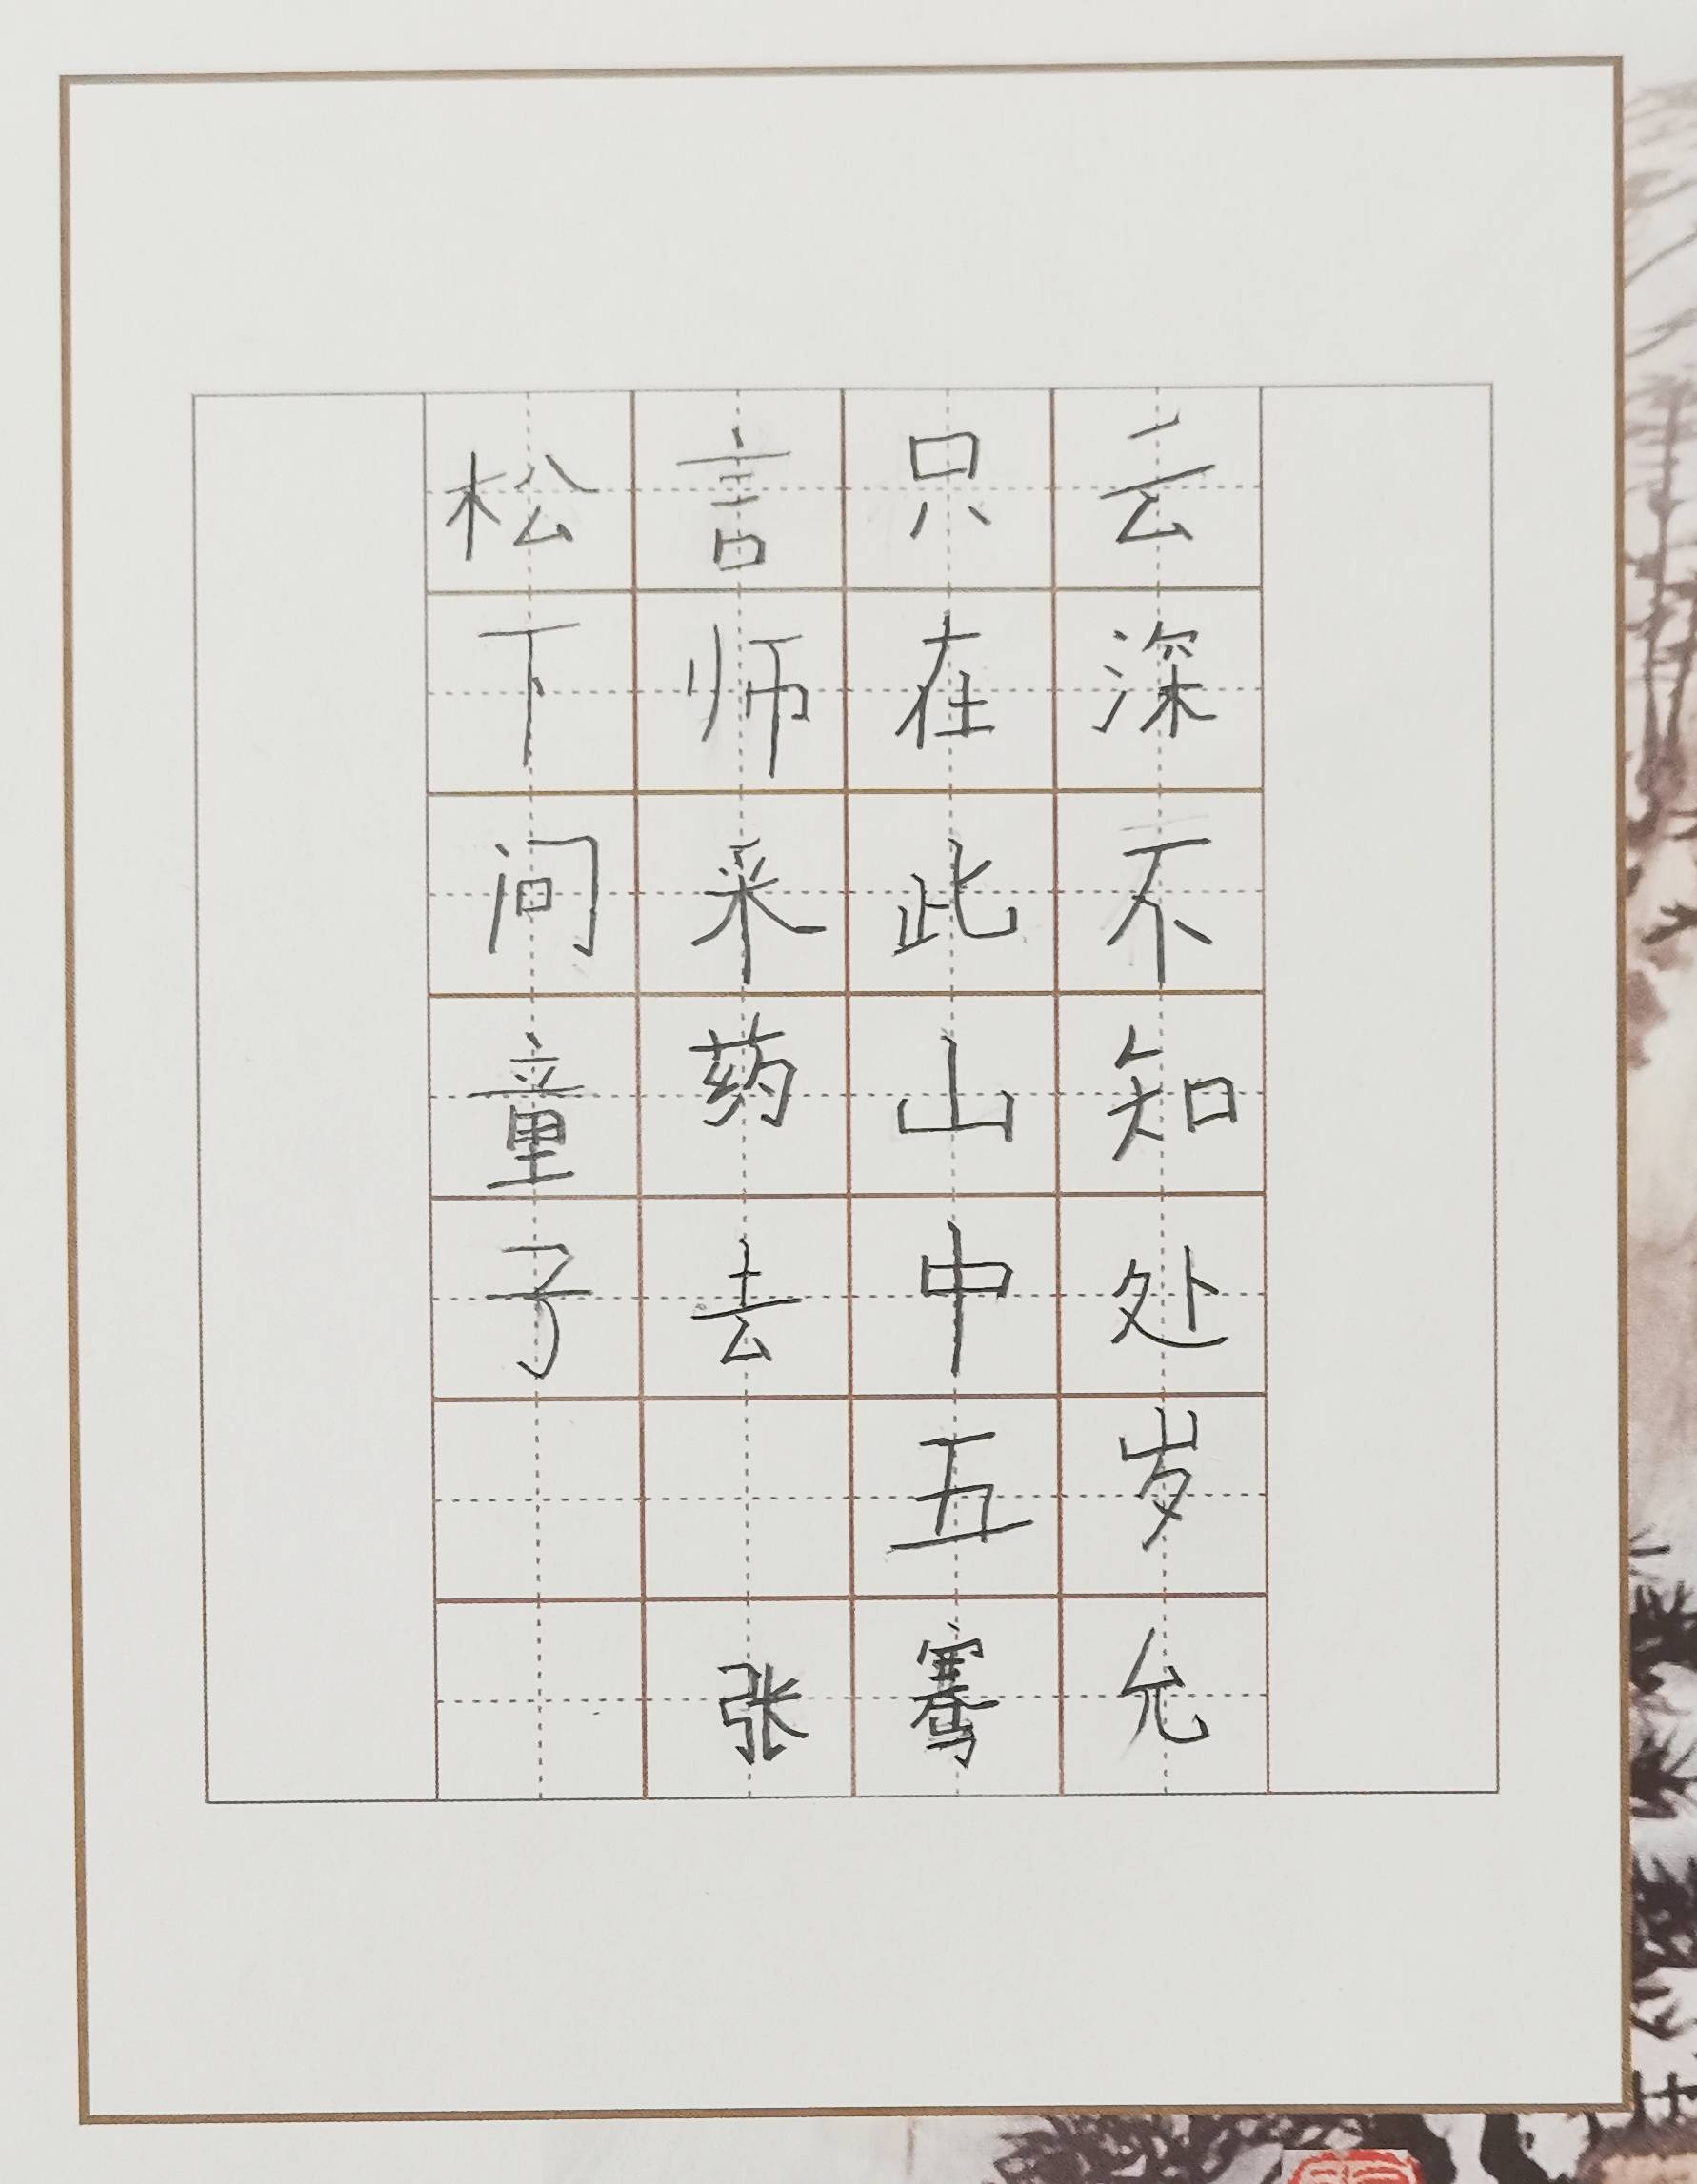 松下问童子
言师采药去
只在此山中
云深不知处
五岁
张骞允